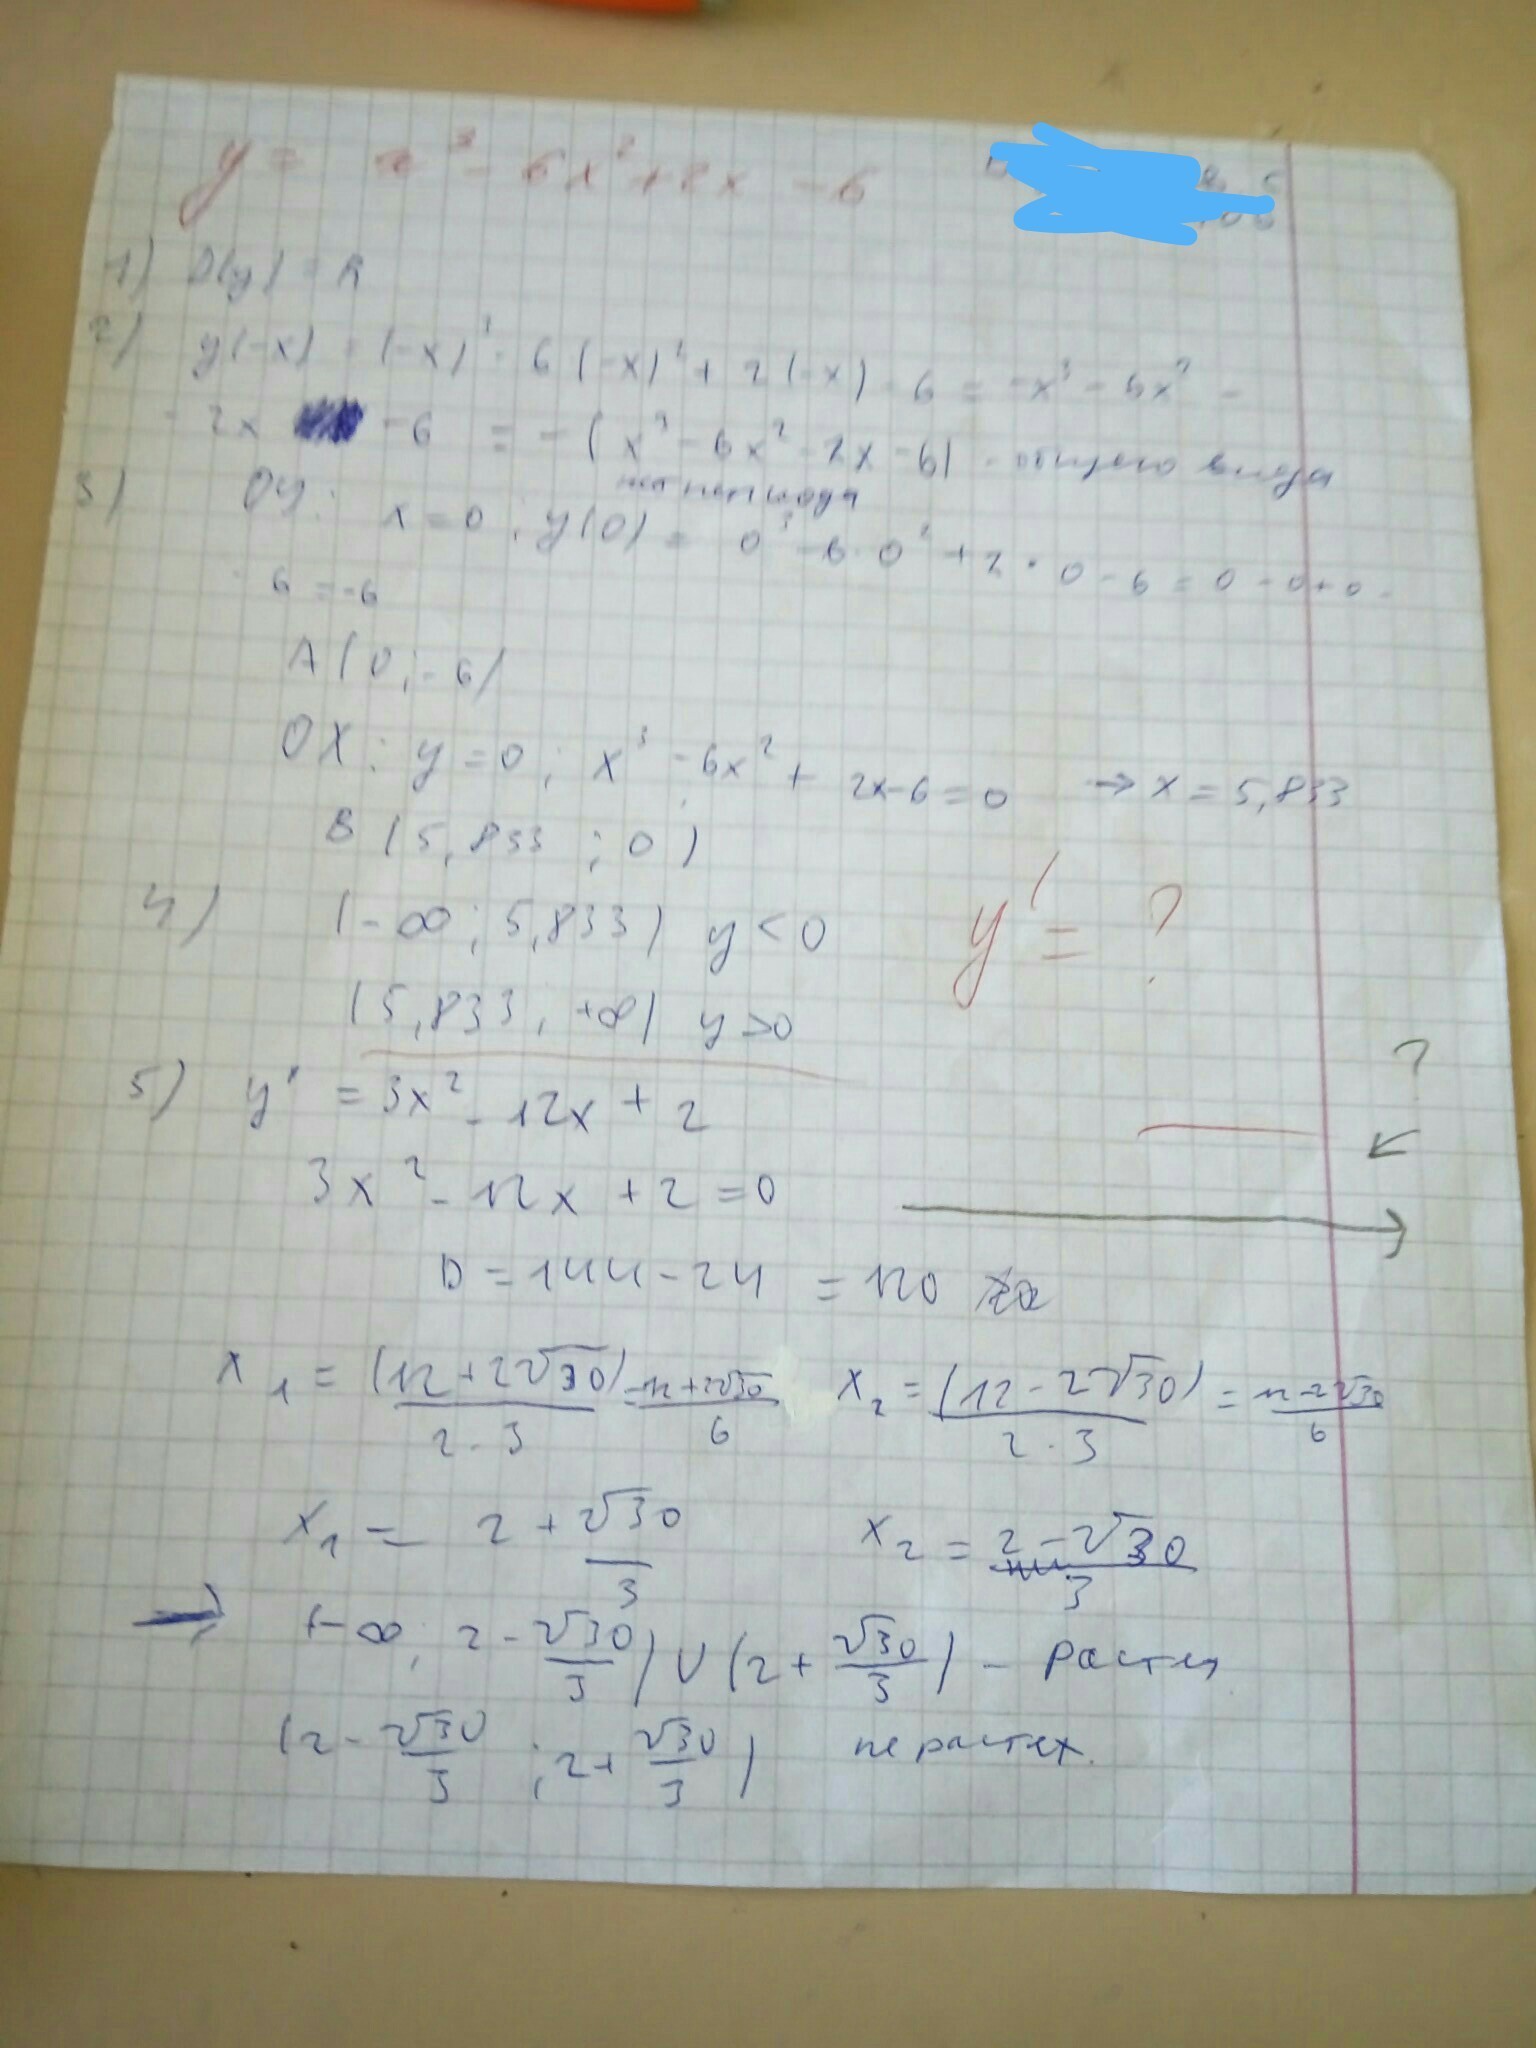 y = x³ - 6x² + 2x - 6
1) D(y) = R
2) y(-x) = (-x)³ - 6(-x)² + 2(-x) - 6 = -x³ - 6x² -
- 2x - 6 = -(x³ - 6x² - 2x - 6) - общего вида
3) OY: x = 0; y(0) = 0³ - 6·0² + 2·0 - 6 = 0 - 0 + 0 -
- 6 = -6
A(0; -6)
OX: y = 0; x³ - 6x² + 2x - 6 = 0 → x = 5,833
B(5,833; 0)
4) (-∞; 5,833) y < 0
y' = ?
(5,833; +∞) y > 0
?
5) y' = 3x² - 12x + 2
3x² - 12x + 2 = 0
D = 144 - 24 = 120
x₁ = (12 + 2√30)/(2·3) = (12 + 2√30)/6 x₂ = (12 - 2√30)/(2·3) = (12 - 2√30)/6
x₁ = 2 + √30/3 x₂ = (2 - √30)/3
→ (-∞; 2 - √30/3) ∪ (2 + √30/3) - растет
(2 - √30/3; 2 + √30/3) не растет.